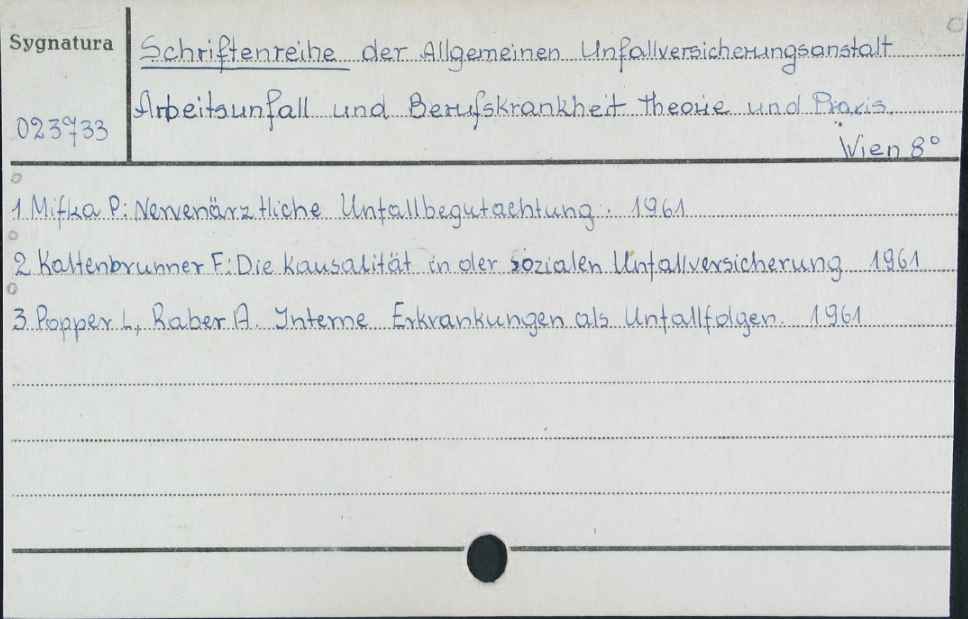 Sygnatura
Schriftenreihe der Allgemeinen Unfallversicherungsanstalt
Arbeitsunfall und Berufskrankheit Theorie und Praxis.
023733
Wien 8°
1 Mifka P: Nervenärztliche Unfallbegutachtung. 1961
2 Kaltenbrunner F: Die Kausalität in der sozialen Unfallversicherung 1961
3 Popper L, Raber A. Interne Erkrankungen als Unfallfolgen. 1961